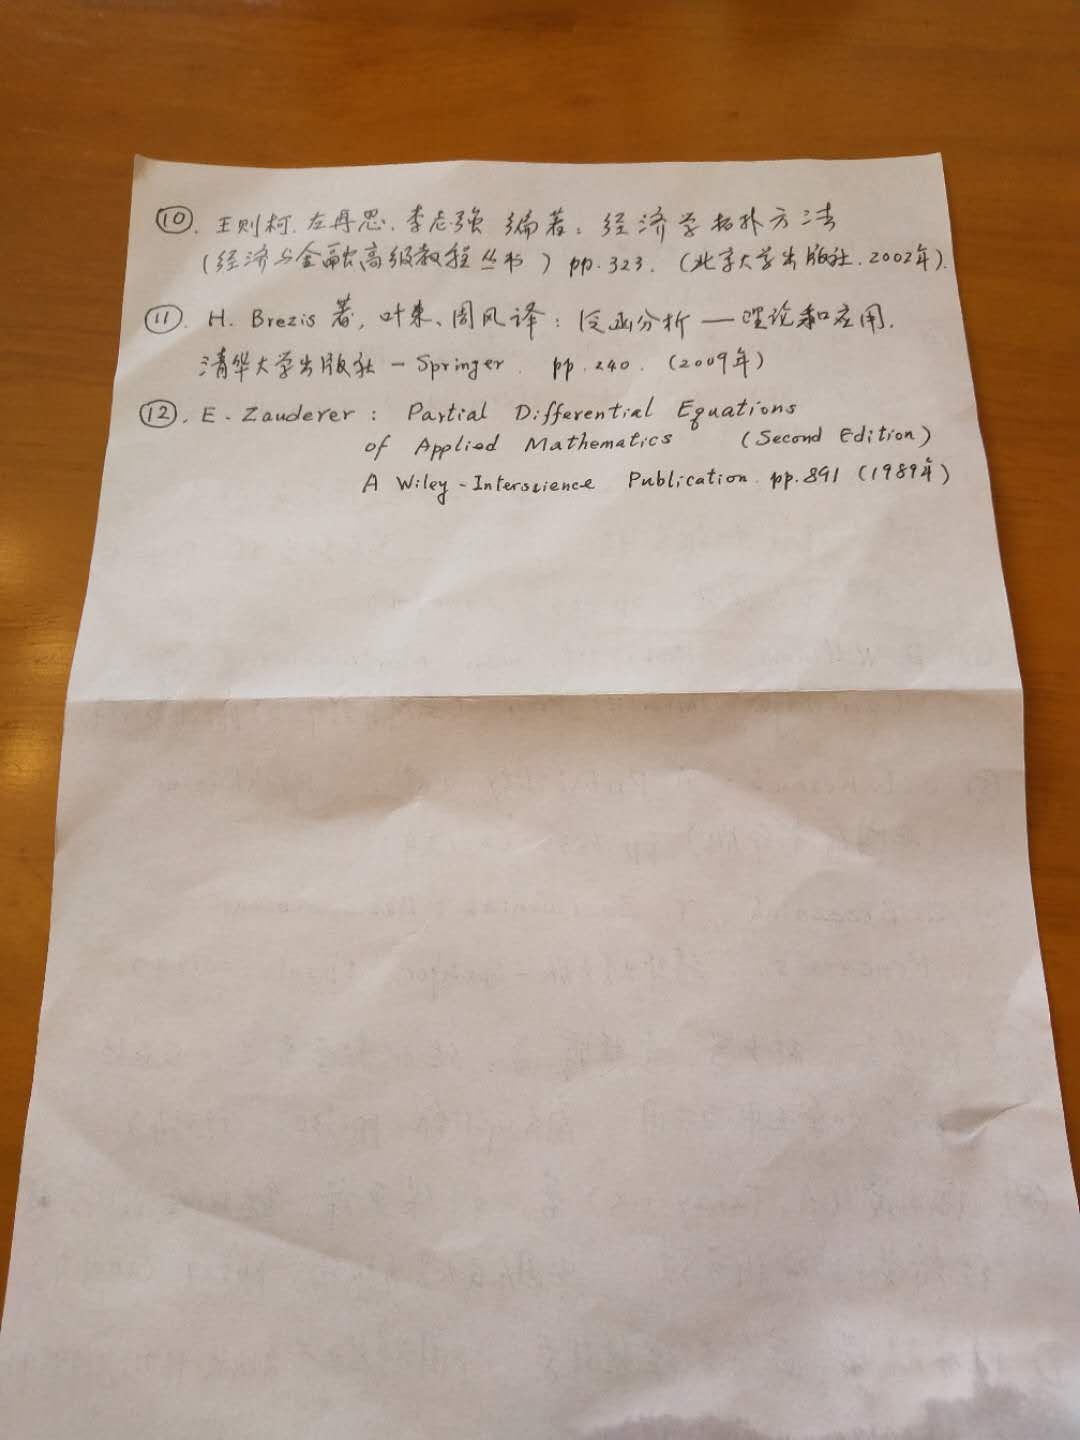 ⑩. 王则柯. 左再思. 李志强 编著: 经济学拓扑方法
(经济与金融高级教程丛书) pp.323. (北京大学出版社. 2002年).
⑪. H. Brezis 著, 叶东、周风译: 泛函分析 — 理论和应用.
清华大学出版社 - Springer. pp.240. (2009年)
⑫. E. Zauderer : Partial Differential Equations
of Applied Mathematics (Second Edition)
A Wiley-Interscience Publication. pp.891 (1989年)